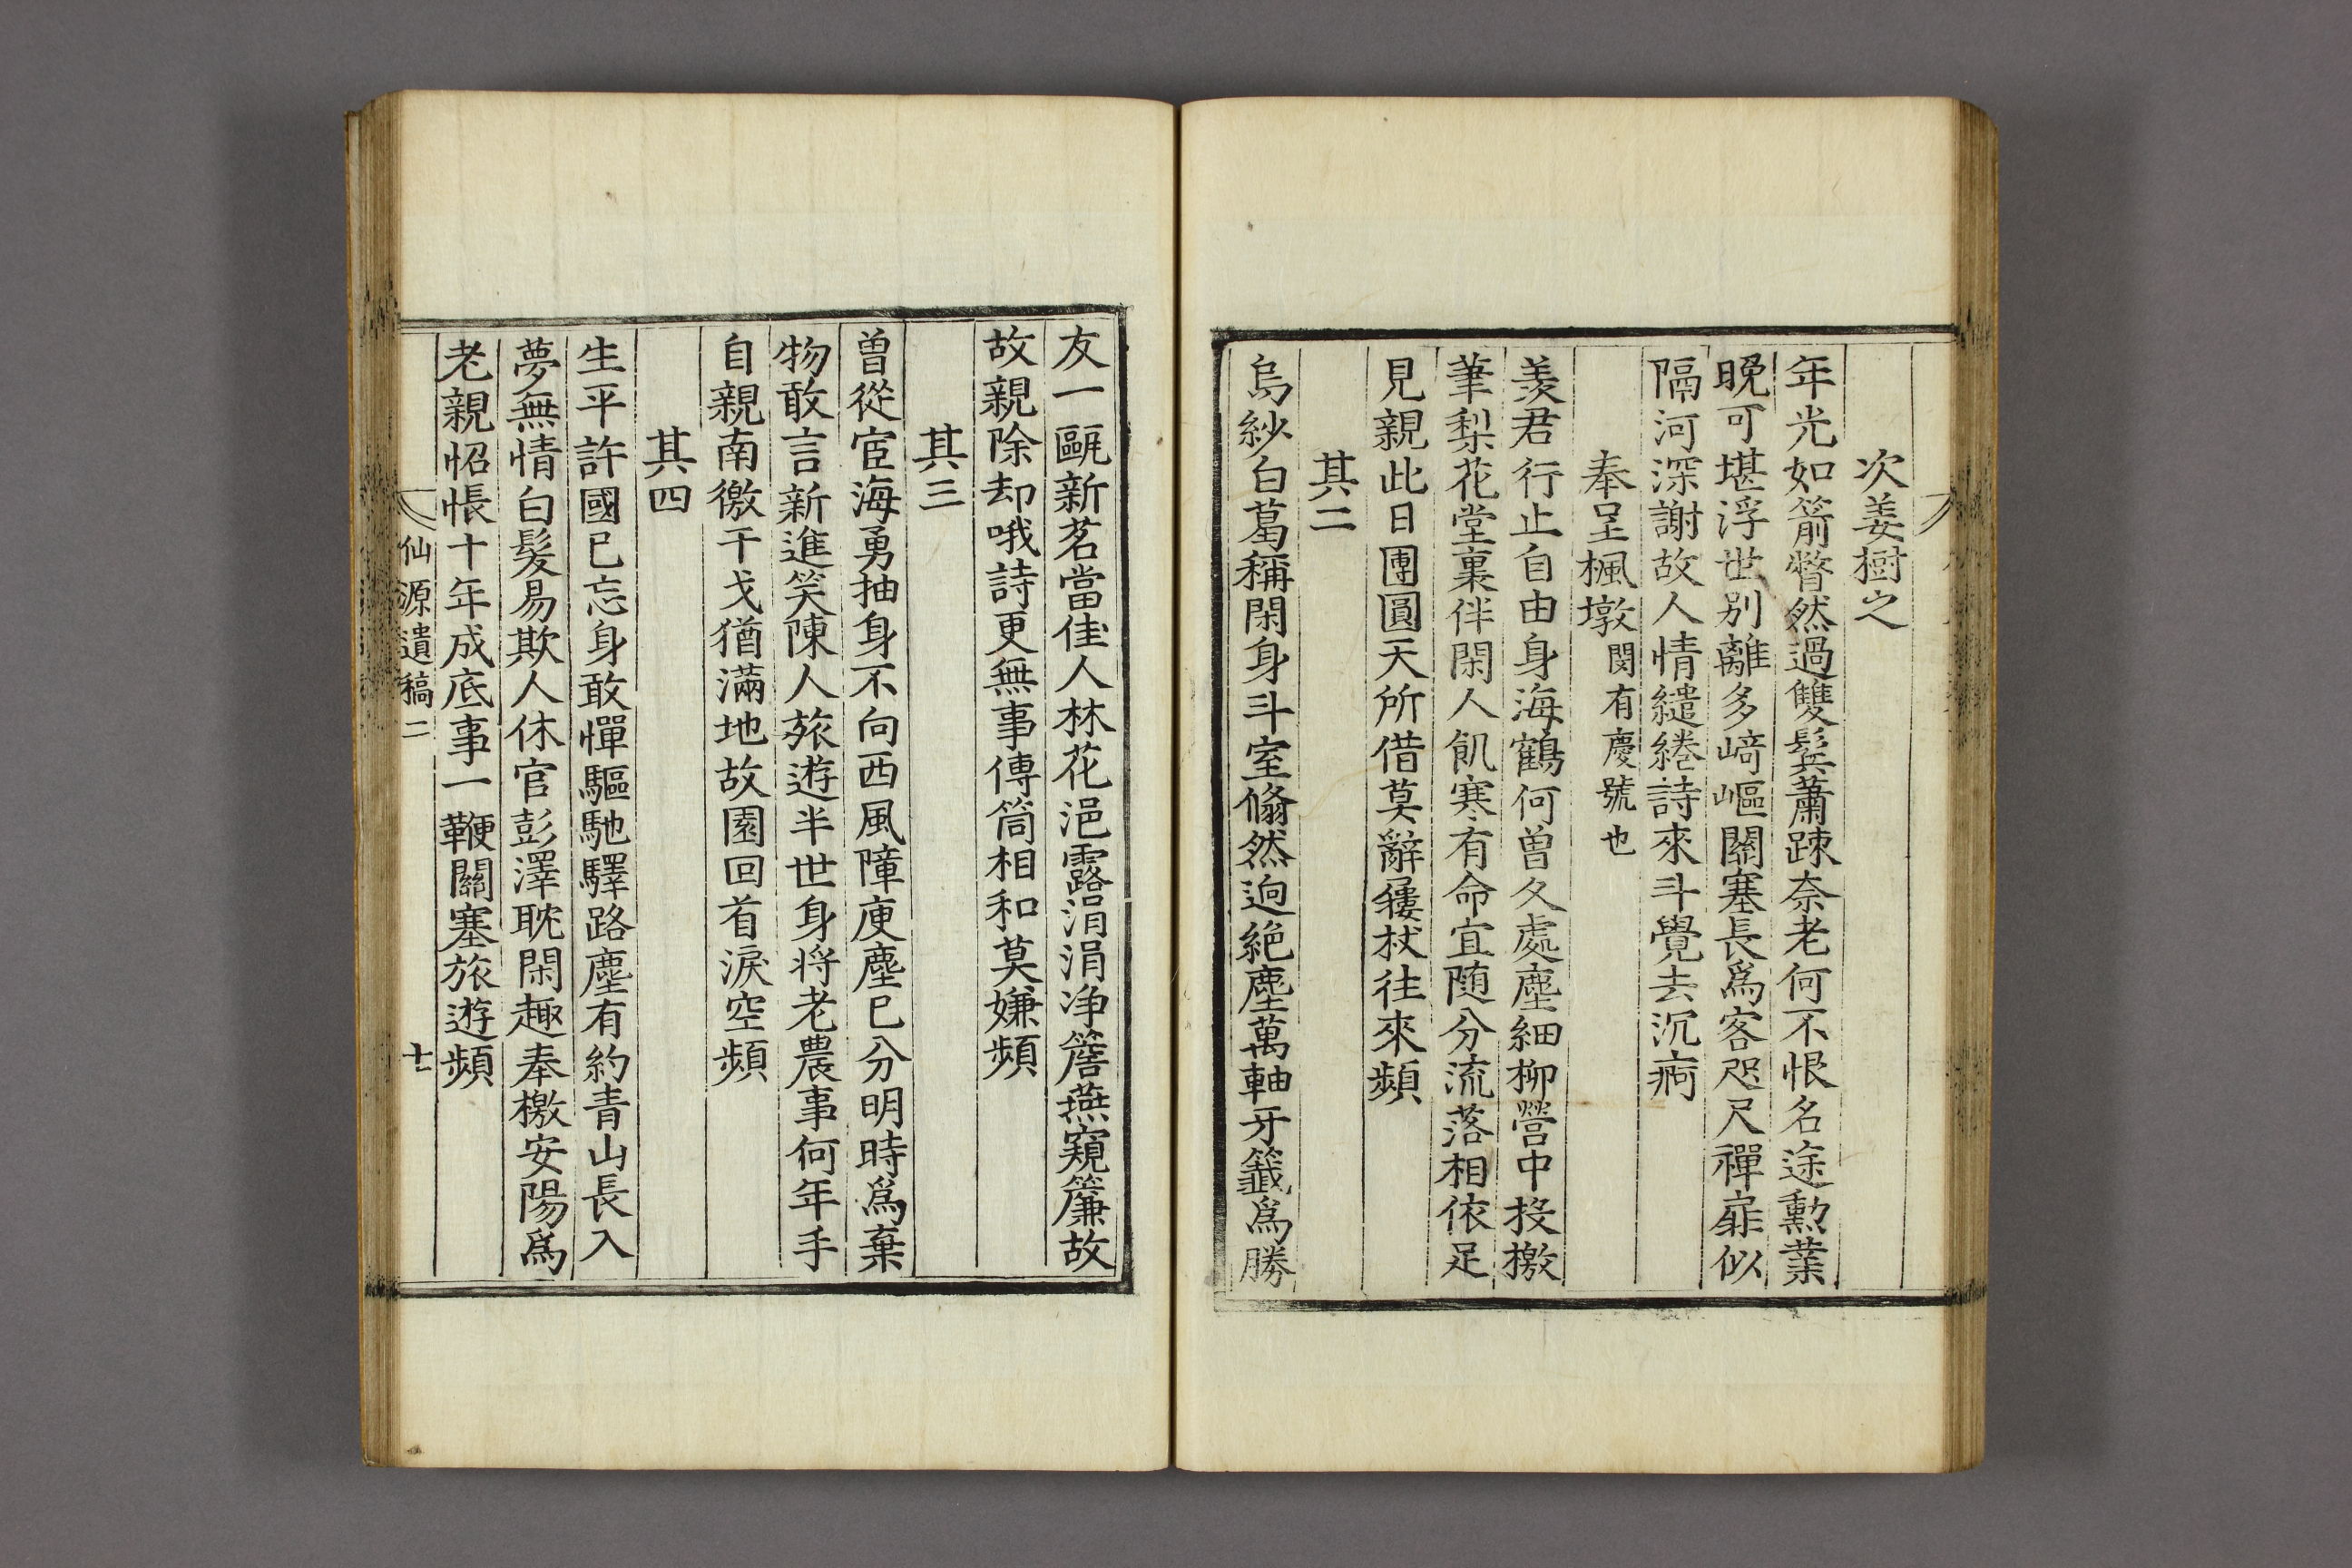 次姜樹之
年光如箭瞥然過雙鬓蕭踈奈老何不恨名途勳業
晚可堪浮世別離多﨑嶇關塞長爲客咫尺禪扉似
隔河深謝故人情繾綣詩來斗覺去沉痾
奉呈楓墩閔有慶號也
羡君行止自由身海鶴何曽久處塵細柳營中投檄
筆梨花堂裏伴閑人飢寒有命宜随分流落相依足
見親此日團圓天所借莫辭㞞杖往來頻
其二
烏紗白葛稱閑身斗室翛然逈絶塵萬軸牙籤爲勝
友一甌新茗當佳人林花浥露涓涓净簷燕窺簾故
故親除却哦詩更無事傳筒相和莫嫌頻
其三
曽從宦海勇抽身不向西風障庾塵已分明時爲棄
物敢言新進笑陳人旅遊半世身将老農事何年手
自親南徼干戈猶滿地故園回首淚空頻
其四
生平許國已忘身敢憚驅馳驛路塵有約青山長入
夢無情白髮易欺人休官彭澤耽閑趣奉檄安陽爲
老親怊悵十年成底事一鞭關塞旅遊頻
仙源遺稿二 十七